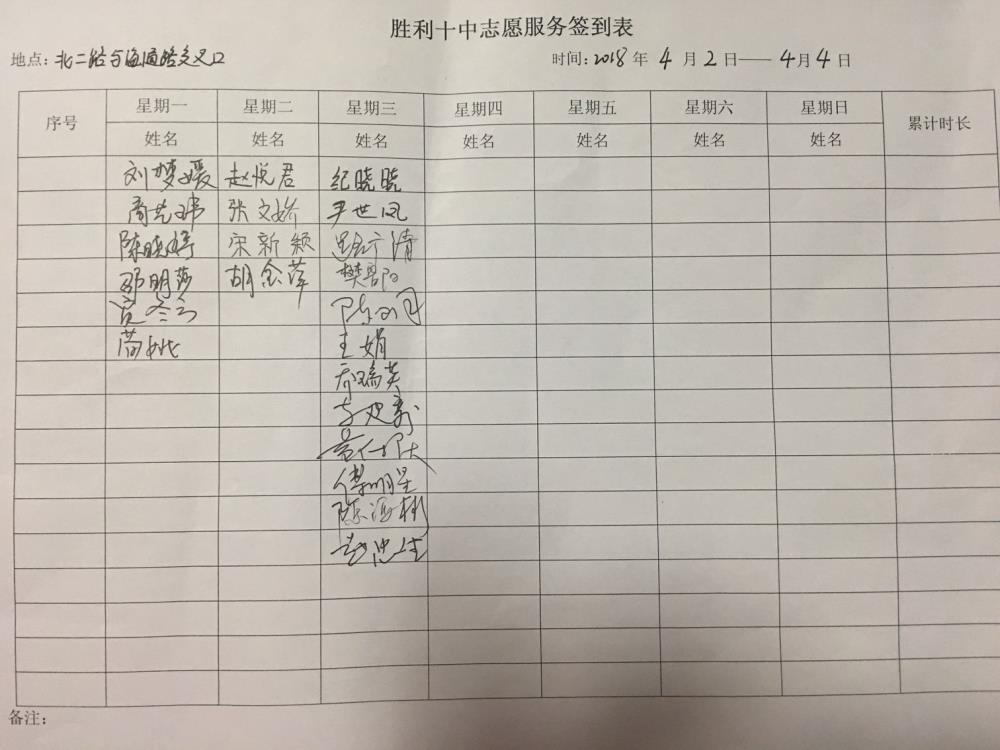 胜利十中志愿服务签到表
地点：北二路与海通路交叉口 时间：2018年 4月2日——4月4日
序号 星期一 星期二 星期三 星期四 星期五 星期六 星期日 累计时长
姓名 姓名 姓名 姓名 姓名 姓名 姓名
刘梦媛 赵悦君 纪晓晓
张文娇 尹世凤
陈晓婷 宋新颖
邵明莎 胡金萍
王娟
乔瑞英
傅明星
陈海彬
赵忠生
备注：